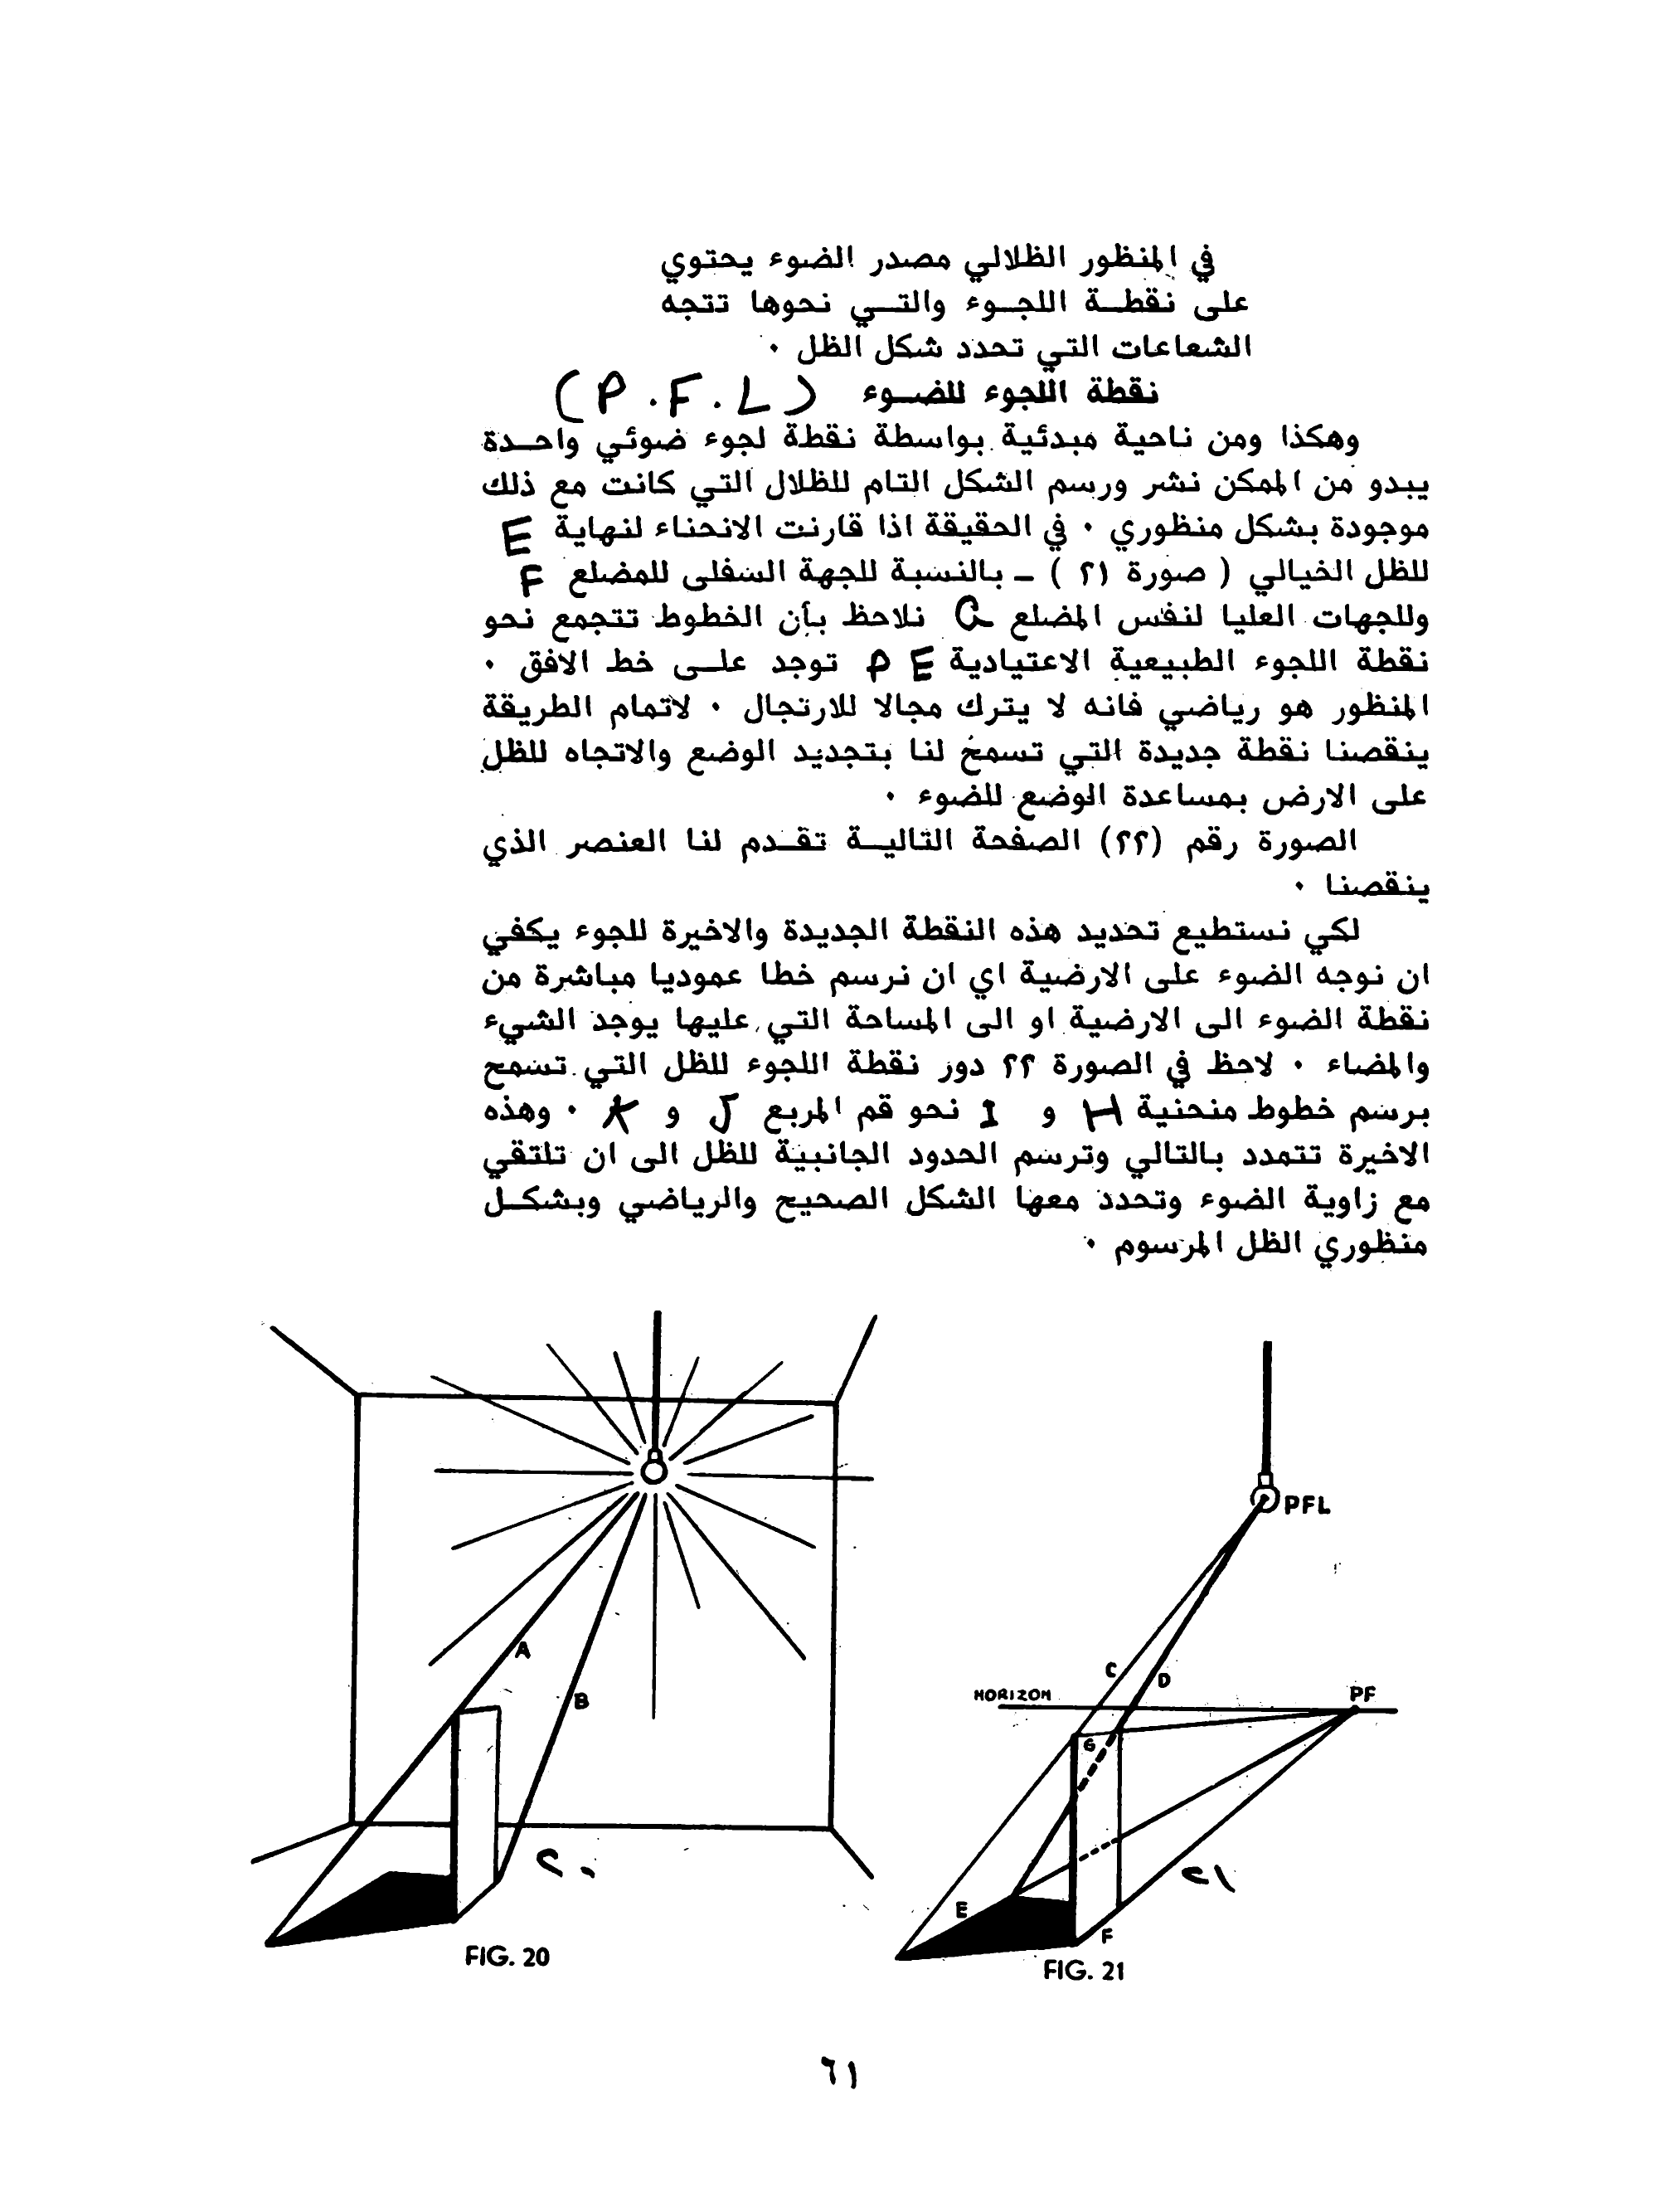 في المنظور الظلالي مصدر الضوء يحتوي
على نقطة اللجوء والتي نحوها تتجه
الشعاعات التي تحدد شكل الظل .
نقطة اللجوء للضوء (P.F.L)
وهكذا ومن ناحية مبدئية بواسطة نقطة لجوء ضوئي واحدة
يبدو من الممكن نشر ورسم الشكل التام للظلال التي كانت مع ذلك
موجودة بشكل منظوري . في الحقيقة اذا قارنت الانحناء لنهاية E
للظل الخيالي ( صورة ٢١ ) – بالنسبة للجهة السفلى للمضلع F
وللجهات العليا لنفس المضلع G نلاحظ بأن الخطوط تتجمع نحو
نقطة اللجوء الطبيعية الاعتيادية P E توجد على خط الافق .
المنظور هو رياضي فانه لا يترك مجالا للارتجال . لاتمام الطريقة
ينقصنا نقطة جديدة التي تسمح لنا بتجديد الوضع والاتجاه للظل
على الارض بمساعدة الوضع للضوء .
الصورة رقم (٢٢) الصفحة التالية تقدم لنا العنصر الذي
ينقصنا .
لكي نستطيع تحديد هذه النقطة الجديدة والاخيرة للجوء يكفي
ان نوجه الضوء على الارضية اي ان نرسم خطا عموديا مباشرة من
نقطة الضوء الى الارضية او الى المساحة التي عليها يوجد الشيء
والمضاء . لاحظ في الصورة ٢٢ دور نقطة اللجوء للظل التي تسمح
برسم خطوط منحنية H و I نحو قم المربع J و K . وهذه
الاخيرة تتمدد بالتالي وترسم الحدود الجانبية للظل الى ان تلتقي
مع زاوية الضوء وتحدد معها الشكل الصحيح والرياضي وبشكل
منظوري الظل المرسوم .
A
B
٢٠
FIG. 20
PFL
C
D
HORIZON
PF
G
٢١
E
F
FIG. 21
٦١